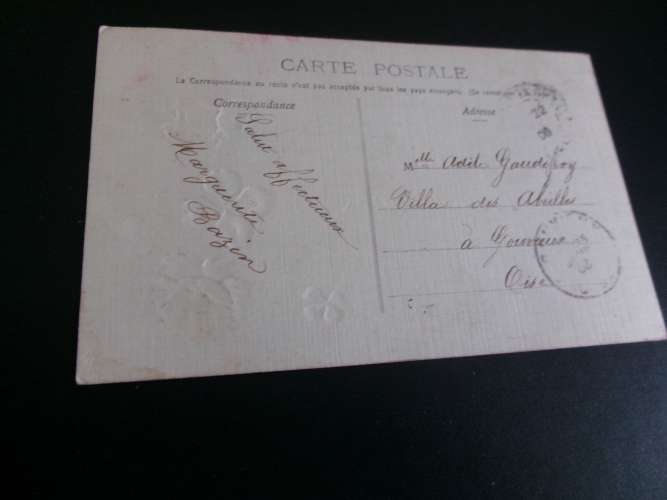 CARTE POSTALE
La Correspondance au recto n'est pas acceptée par tous les pays étrangers. (Se renseigner
Correspondance
Adresse
Salut affectueux
Marguerite
Bazin
Mlle Adèle Gaudefroy
Villa des Abeilles
à Gouvieux
Oise